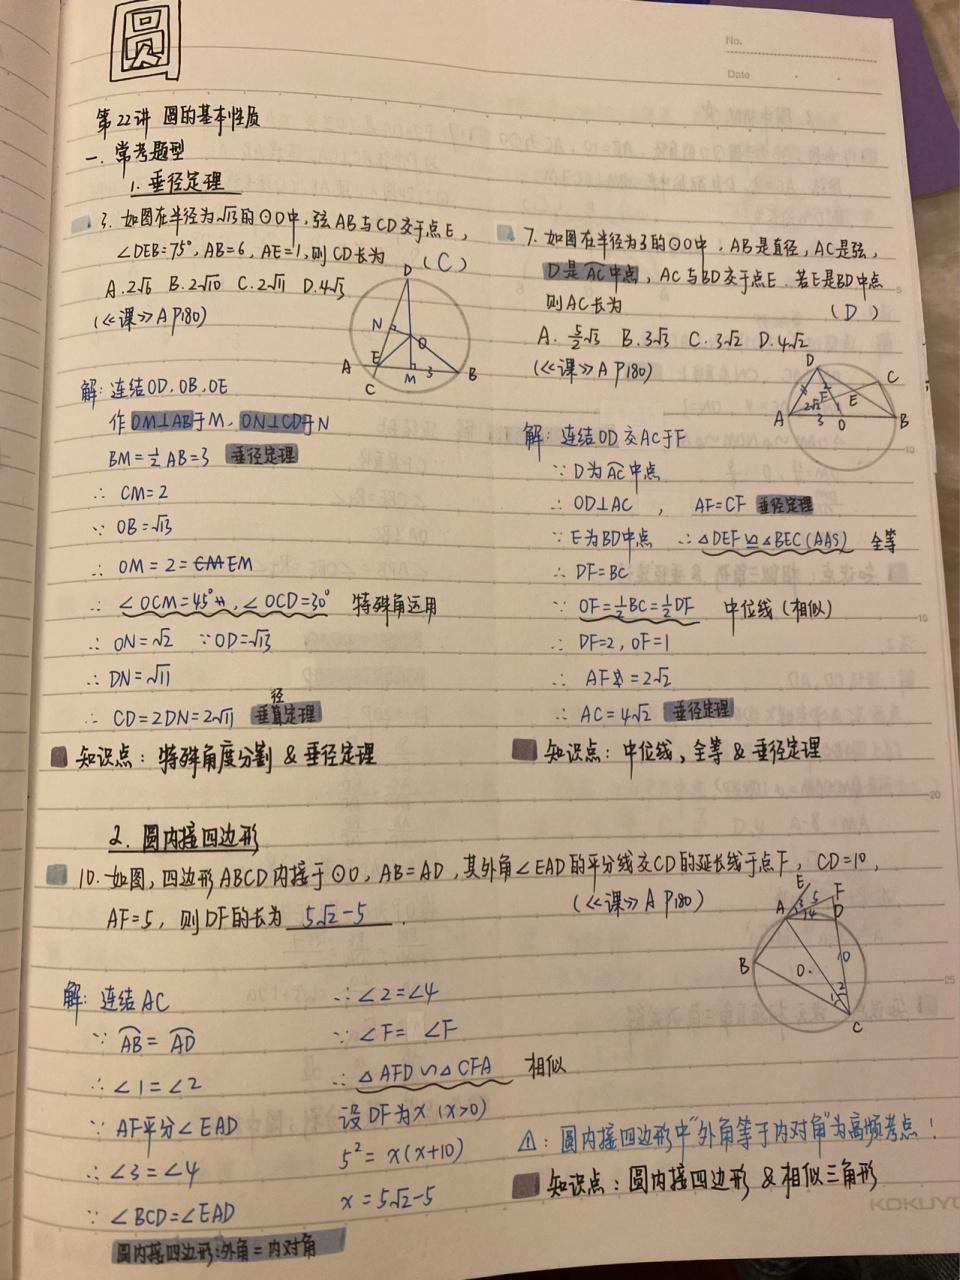 圆
No.
Date
第22讲 圆的基本性质
一. 常考题型
1. 垂径定理
3. 如图在半径为√13的⊙O中,弦AB与CD交于点E,
∠DEB=75°,AB=6,AE=1,则CD长为 (C)
A.2√6 B.2√10 C.2√11 D.4√3
(《课》A P180)
D
N
O
A
E
C
M
3
B
解: 连结OD、OB、OE
作OM⊥AB于M,ON⊥CD于N
BM=½AB=3 垂径定理
∴ CM=2
∵ OB=√13
∴ OM=2=EM
∴ ∠OCM=45°,∠OCD=30° 特殊角运用
∴ ON=√2 ∵OD=√13
∴ DN=√11
∴ CD=2DN=2√11 垂径定理
知识点: 特殊角度分割 & 垂径定理
7. 如图在半径为3的⊙O中,AB是直径,AC是弦,
D是AC中点,AC与BD交于点E.若E是BD中点
则AC长为 (D)
A. 5/2√3 B.3√3 C.3√2 D.4√2
(《课》A P180)
D
C
F
E
2√2
1
A
3
O
B
解: 连结OD交AC于F
∵ D为AC中点
∴ OD⊥AC , AF=CF 垂径定理
∵ E为BD中点 ∴△DEF≌△BEC(AAS) 全等
∴ DF=BC
∵ OF=½BC=½DF 中位线(相似)
∴ DF=2,OF=1
∴ AF=2√2
∴ AC=4√2 垂径定理
知识点: 中位线、全等 & 垂径定理
2. 圆内接四边形
10. 如图,四边形ABCD内接于⊙O,AB=AD,其外角∠EAD的平分线交CD的延长线于点F, CD=10,
AF=5, 则DF的长为 5√2-5 .
(《课》A P180)
E
F
A
3
5
4
D
B
O
10
1
2
C
解: 连结AC
∵ AB=AD
∴ ∠1=∠2
∵ AF平分∠EAD
∴ ∠3=∠4
∵ ∠BCD=∠EAD
圆内接四边形:外角=内对角
∴∠2=∠4
∵∠F=∠F
∴△AFD∽△CFA 相似
设DF为x(x>0)
5²=x(x+10)
x=5√2-5
⚠: 圆内接四边形中"外角等于内对角"为高频考点!
知识点: 圆内接四边形 & 相似三角形
KOKUYO